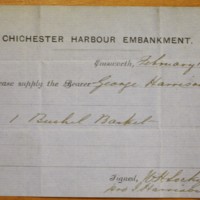 CHICHESTER HARBOUR EMBANKMENT.
Emsworth, February
ease supply the Bearer George Harrison
1 Bushel Basket
Signed,